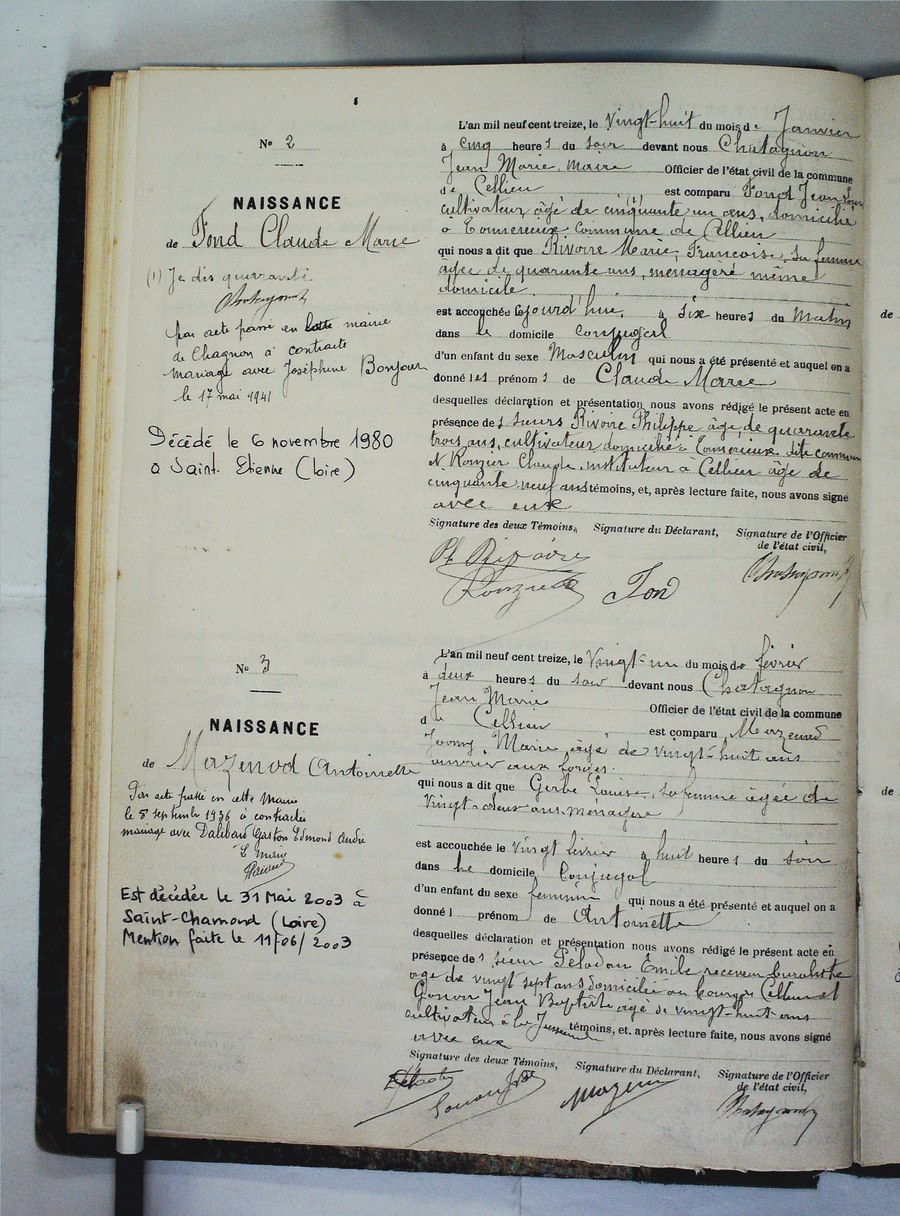 N° 2
NAISSANCE
de Fond Claude Marie
(1) Je dis quarante.
Chatagnon
Par acte passé en la mairie
de Chagnon a contracté
mariage avec Joséphine Bonjour
le 17 mai 1941
Décédé le 6 novembre 1980
à Saint-Etienne (Loire)
L'an mil neuf cent treize, le Vingt-huit du mois de Janvier
à cinq heures du soir devant nous Chatagnon
Jean Marie, maire Officier de l'état civil de la commune
de Cellieu est comparu Fond Jean Louis
cultivateur, âgé de cinquante un ans, domicilié
à commune de Cellieu
qui nous a dit que Rivoire Marie, Francoise, sa femme
agée de quarante ans, ménagère même
domicile
est accouchée aujourd'hui, à six heures du Matin
dans le domicile conjugal
d'un enfant du sexe Masculin qui nous a été présenté et auquel on a
donné les prénoms de Claude Marie
desquelles déclaration et présentation nous avons rédigé le présent acte en
présence des sieurs Rivoire Philippe âgé de quarante
trois ans, cultivateur domicilié à dite commune
Ronzier Claude, instituteur à Cellieu âgé de
cinquante neuf ans témoins, et, après lecture faite, nous avons signé
avec eux
Signature des deux Témoins, Signature du Déclarant, Signature de l'Officier
de l'état civil,
Ph Rivoire
Fond Chatagnon
N° 3
NAISSANCE
de Mazenod Antoinette
Par acte passé en cette Mairie
le 5 septembre 1936 a contracté
mariage avec Dalibard Gaston Edmond André
Le Maire
Est décédée le 31 Mai 2003 à
Saint-Chamond (Loire)
Mention faite le 11/06/2003
L'an mil neuf cent treize, le Vingt-un du mois de février
à deux heures du soir devant nous Chatagnon
Jean Marie Officier de l'état civil de la commune
de Cellieu est comparu Mazenod
Marie, âgé de vingt-huit ans
ouvrier aux forges
qui nous a dit que Gerbe Louise, sa femme âgée de
Vingt-deux ans, ménagère
est accouchée le Vingt février à huit heures du soir
dans le domicile Conjugal
d'un enfant du sexe féminin qui nous a été présenté et auquel on a
donné l prénom de Antoinette
desquelles déclaration et présentation nous avons rédigé le présent acte en
présence des sieur Péladan Emile receveur buraliste
âgé de vingt sept ans domicilié au bourg Cellieu et
Gonon Jean Baptiste âgé de vingt-huit ans
cultivateur à la témoins, et, après lecture faite, nous avons signé
avec eux
Signature des deux Témoins, Signature du Déclarant, Signature de l'Officier
de l'état civil,
Gonon Mazenod Chatagnon
de
de